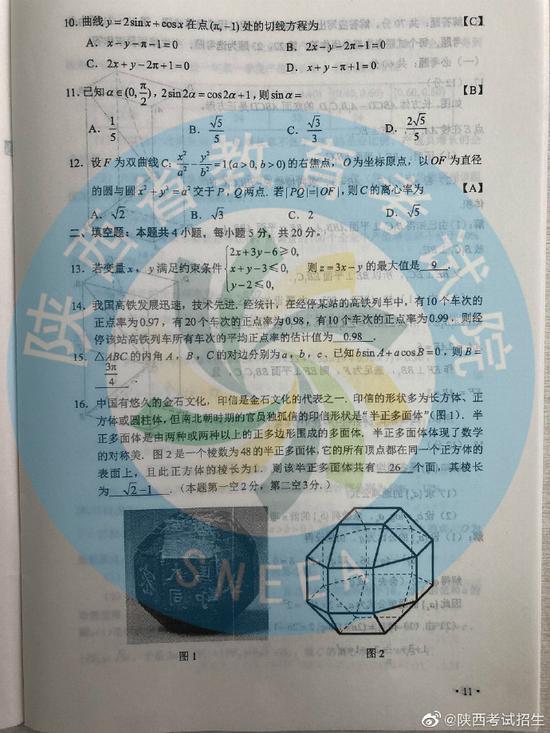 10. 曲线 y=2sinx+cosx 在点(π,-1)处的切线方程为 【C】
A. x-y-π-1=0 B. 2x-y-2π-1=0
C. 2x+y-2π+1=0 D. x+y-π+1=0
11. 已知 α∈(0,π/2), 2sin2α=cos2α+1, 则 sinα= 【B】
A. 1/5 B. √5/5 C. √3/3 D. 2√5/5
12. 设 F 为双曲线 C: x²/a²-y²/b²=1(a>0,b>0)的右焦点, O为坐标原点, 以OF为直径
的圆与圆 x²+y²=a² 交于 P, Q两点. 若|PQ|=|OF|, 则C的离心率为 【A】
A. √2 B. √3 C. 2 D. √5
二、填空题: 本题共4小题, 每小题5分, 共20分.
13. 若变量x, y满足约束条件 {2x+3y-6⩾0, x+y-3⩽0, y-2⩽0, 则 z=3x-y 的最大值是 9 .
14. 我国高铁发展迅速, 技术先进. 经统计, 在经停某站的高铁列车中, 有10个车次的
正点率为0.97, 有20个车次的正点率为0.98, 有10个车次的正点率为0.99, 则经
停该站高铁列车所有车次的平均正点率的估计值为 0.98 .
15. △ABC的内角A, B, C的对边分别为a, b, c. 已知bsinA+acosB=0, 则B=
3π/4 .
16. 中国有悠久的金石文化, 印信是金石文化的代表之一. 印信的形状多为长方体、正
方体或圆柱体, 但南北朝时期的官员独孤信的印信形状是“半正多面体”(图1). 半
正多面体是由两种或两种以上的正多边形围成的多面体. 半正多面体体现了数学
的对称美. 图2是一个棱数为48的半正多面体, 它的所有顶点都在同一个正方体的
表面上, 且此正方体的棱长为1. 则该半正多面体共有 26 个面, 其棱长
为 √2-1 . (本题第一空2分, 第二空3分.)
图1 图2
·11·
陕西省教育考试院
SNEEA
@陕西考试招生